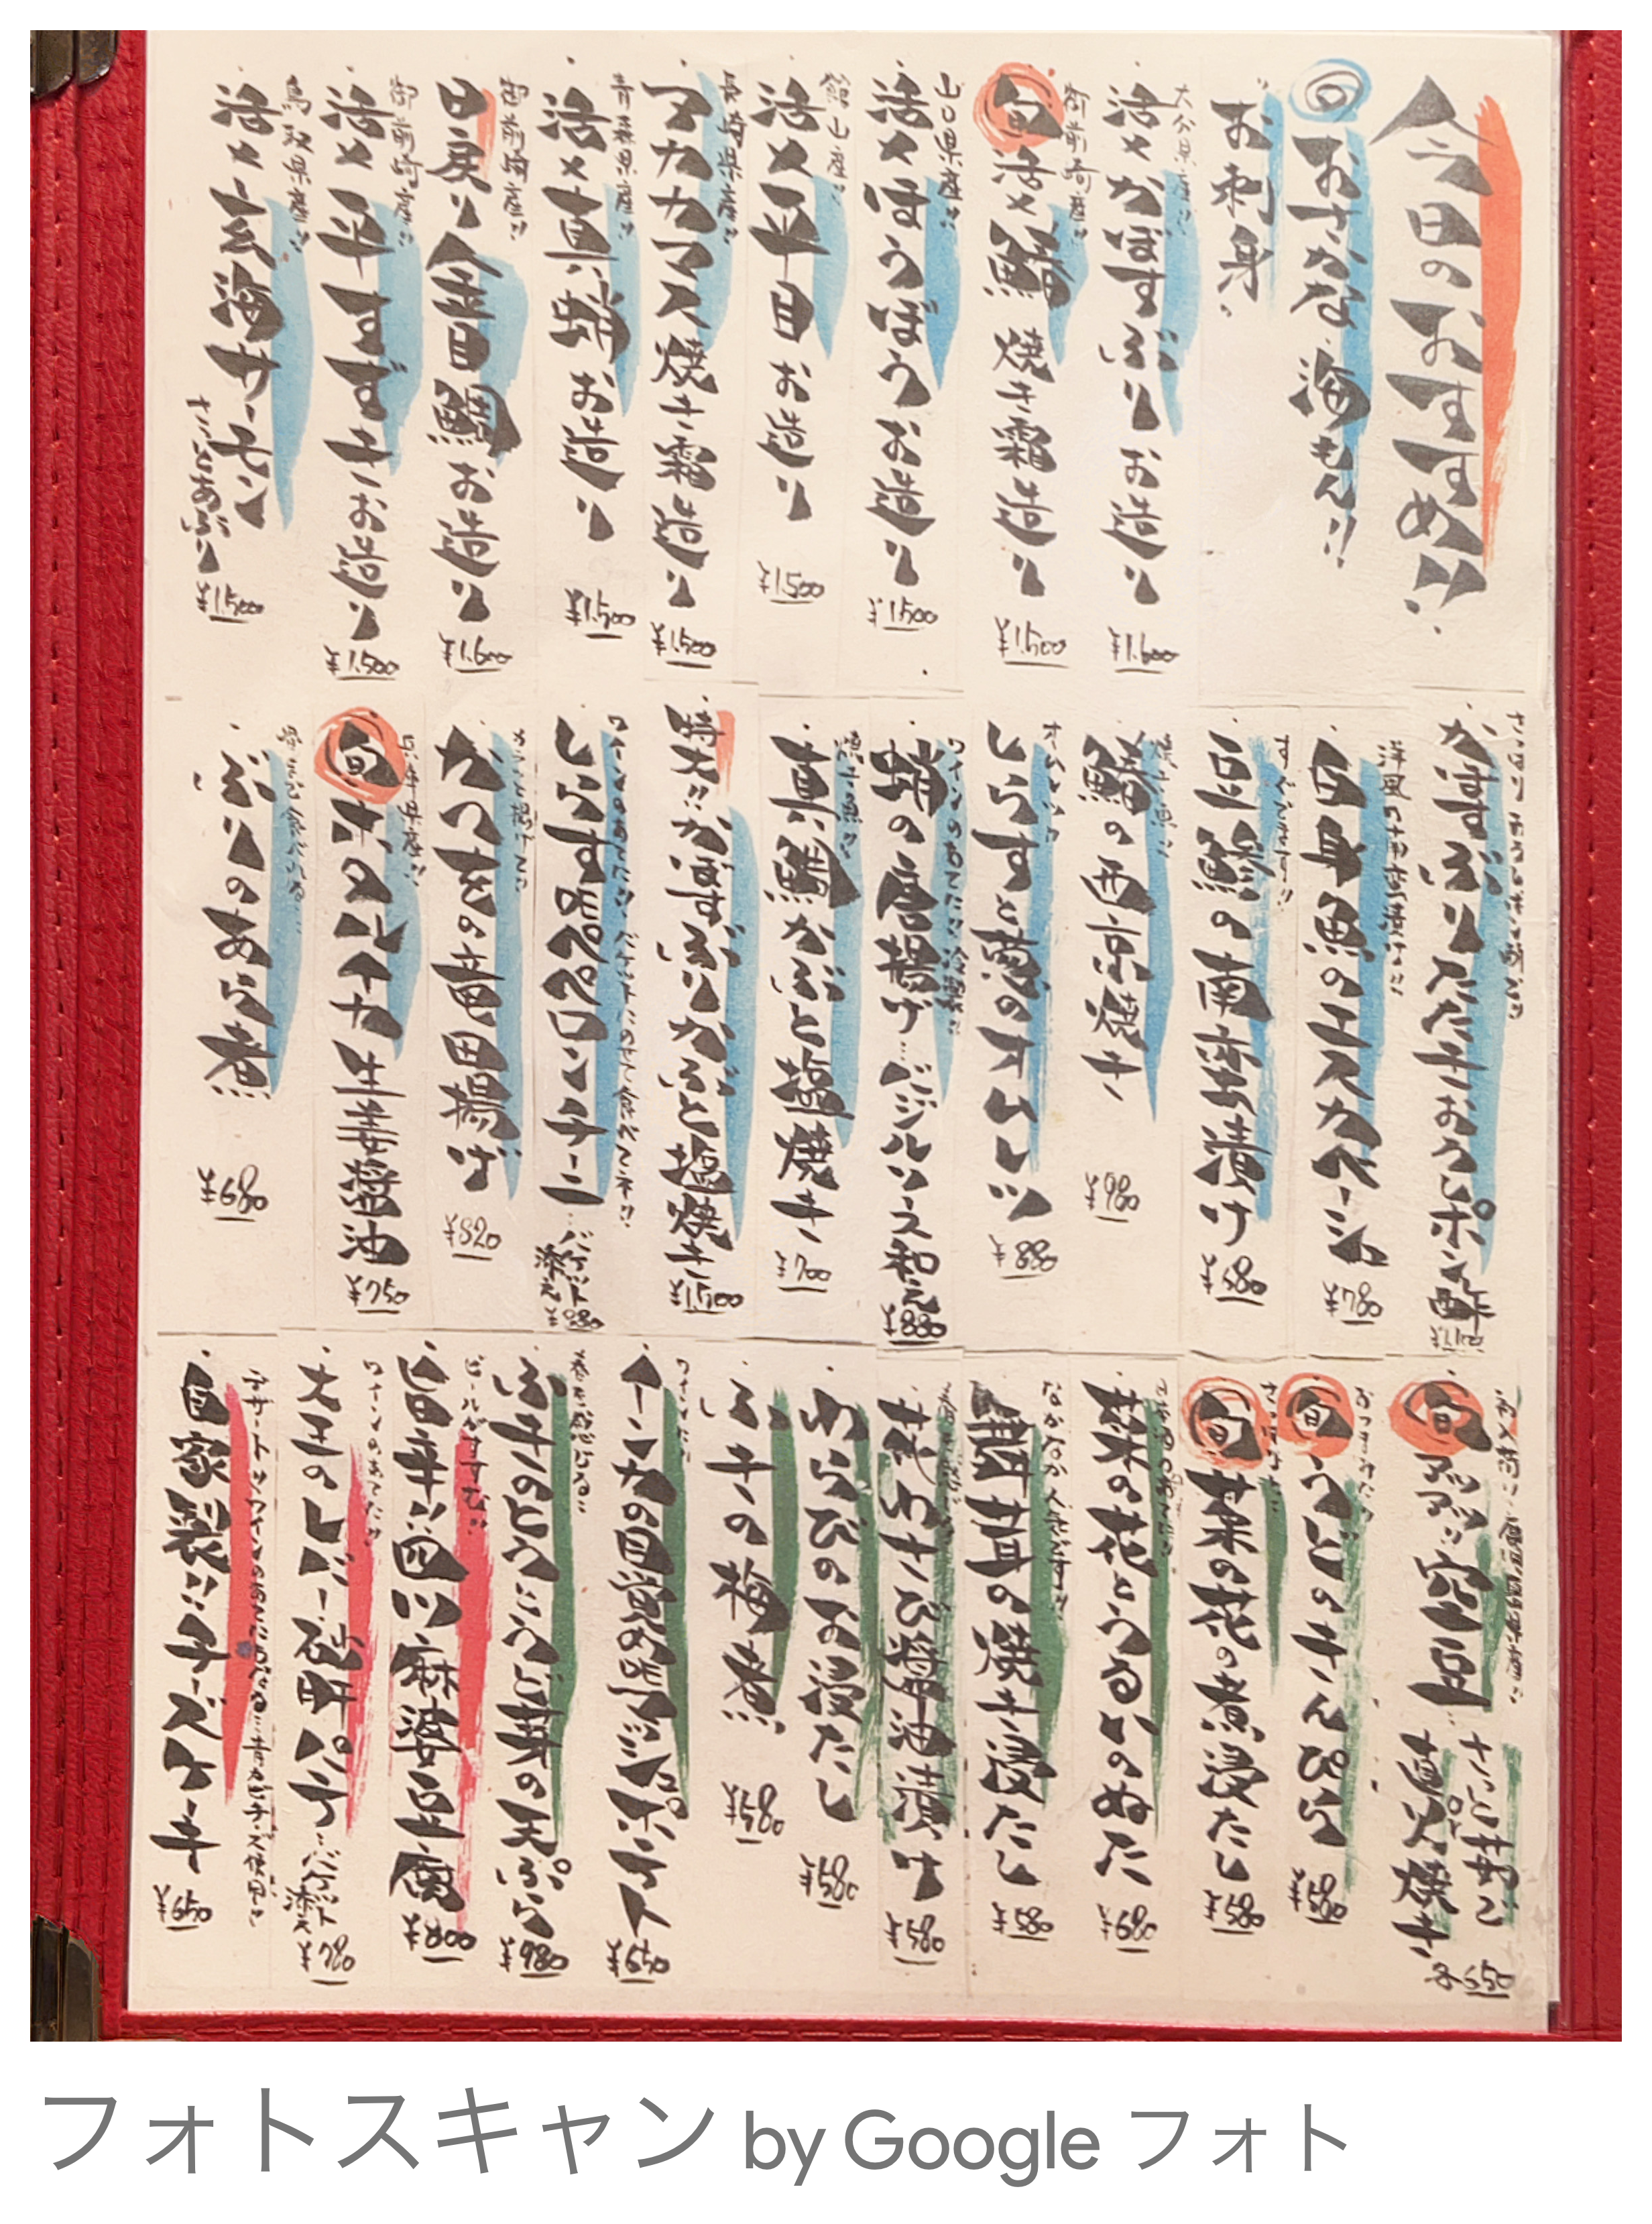 今日のおすすめ!!
旬 おさかな 海もん!!
お刺身
大分県産!!
活〆かぼすぶりお造り ¥1.600
御前崎産!!
旬 活〆鰆 焼き霜造り ¥1.500
山口県産!!
活〆ほうぼうお造り ¥1.500
館山産!!
活〆平目お造り ¥1.500
長崎県産!!
アカカマス焼き霜造り ¥1.500
青森県産!!
活〆真蛸お造り ¥1.500
御前崎産!!
日戻り金目鯛お造り ¥1.600
御前崎産!!
活〆平すずきお造り ¥1.500
鳥取県産!!
活〆玄海サーモン さっとあぶり ¥1.500
さっぱりおろしポン酢で!!
かぼすぶりたたきおろしポン酢 ¥1.100
洋風の南蛮漬け!!
白身魚のエスカベーシュ ¥780
すぐでます!!
豆鯵の南蛮漬け ¥580
焼き魚!!
鰆の西京焼き ¥980
しらすと葱のオムレツ ¥880
ワインのあてに!!冷製!!
蛸の唐揚げ…バジルソース和え ¥880
焼き魚!!
真鯛かぶと塩焼き ¥700
特大!!かぼすぶりかぶと塩焼き ¥1.500
ワインのあてに!!バケットにのせて食べてネ!!
しらすペペロンチーニ…バケット添え ¥880
カラッと揚げて!!
かつをの竜田揚げ ¥820
兵庫県産!!
旬 ホタルイカ生姜醤油 ¥750
ぶりのあら煮 ¥680
旬 アツアツ!!空豆…さっと茹で or 直火焼き 各650
おつまみに!!
旬 うどのきんぴら ¥580
旬 菜の花の煮浸たし ¥580
菜の花とうるいのぬた ¥680
なかなか人気です!!
舞茸の焼き浸たし ¥580
花わさび醤油漬け ¥580
わらびのお浸たし ¥580
ふきの梅煮 ¥580
ワインに!!
インカの目覚めポンマジット ¥650
春を感じる…
ふきのとうとうど芽の天ぷら ¥980
ビールがすすむ!!
旨辛い四川麻婆豆腐 ¥800
ワインのあてに!!
大王のレバー砒肝パテ…バケット添え ¥780
デザート!!ワインのあんにもなる…青カビチーズ使用!!
自家製!!チーズケーキ ¥650
フォトスキャン by Google フォト